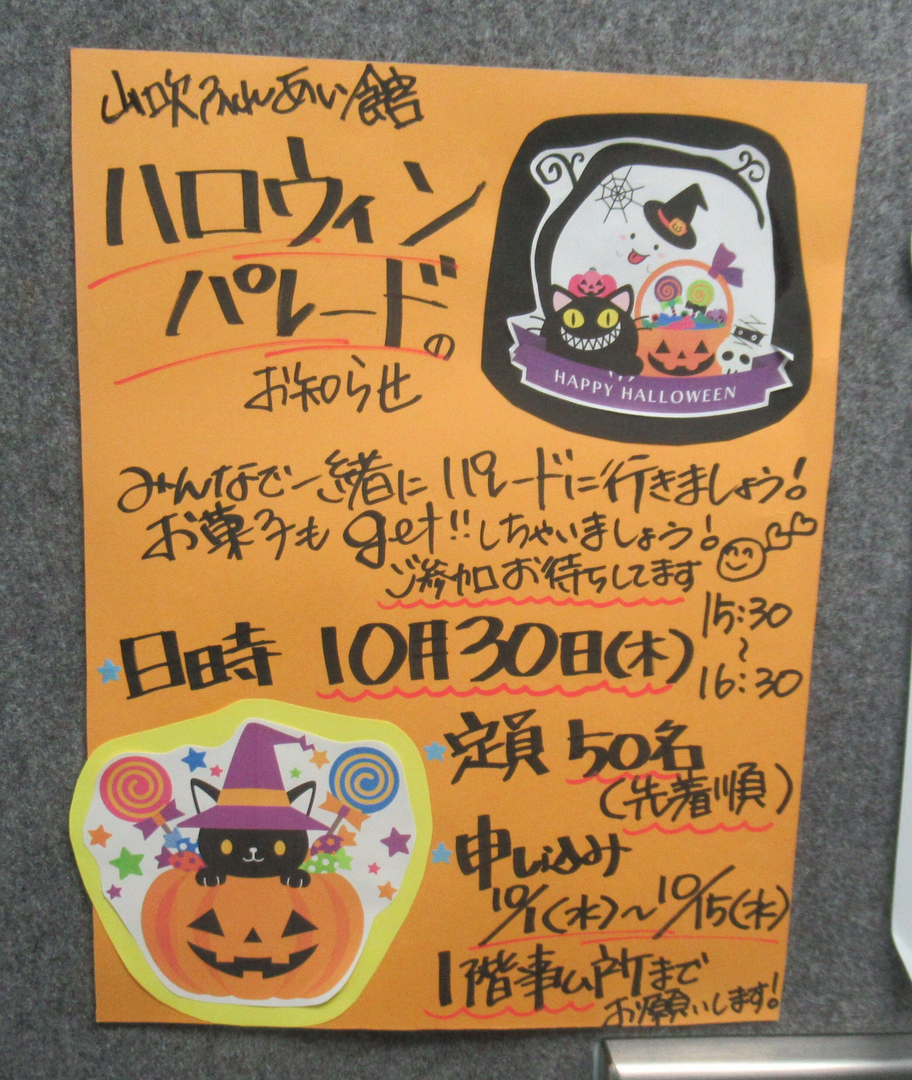 山吹ふれあい館
ハロウィン
パレードの
お知らせ
HAPPY HALLOWEEN
みんなで一緒に パレードに行きましょう!
お菓子も get!! しちゃいましょう!
ご参加お待ちしてます
日時 10月30日(木) 15:30
~
16:30
定員 50名
(先着順)
申し込み
10/1(水)~10/15(水)
1階事ム所まで
お願いします!